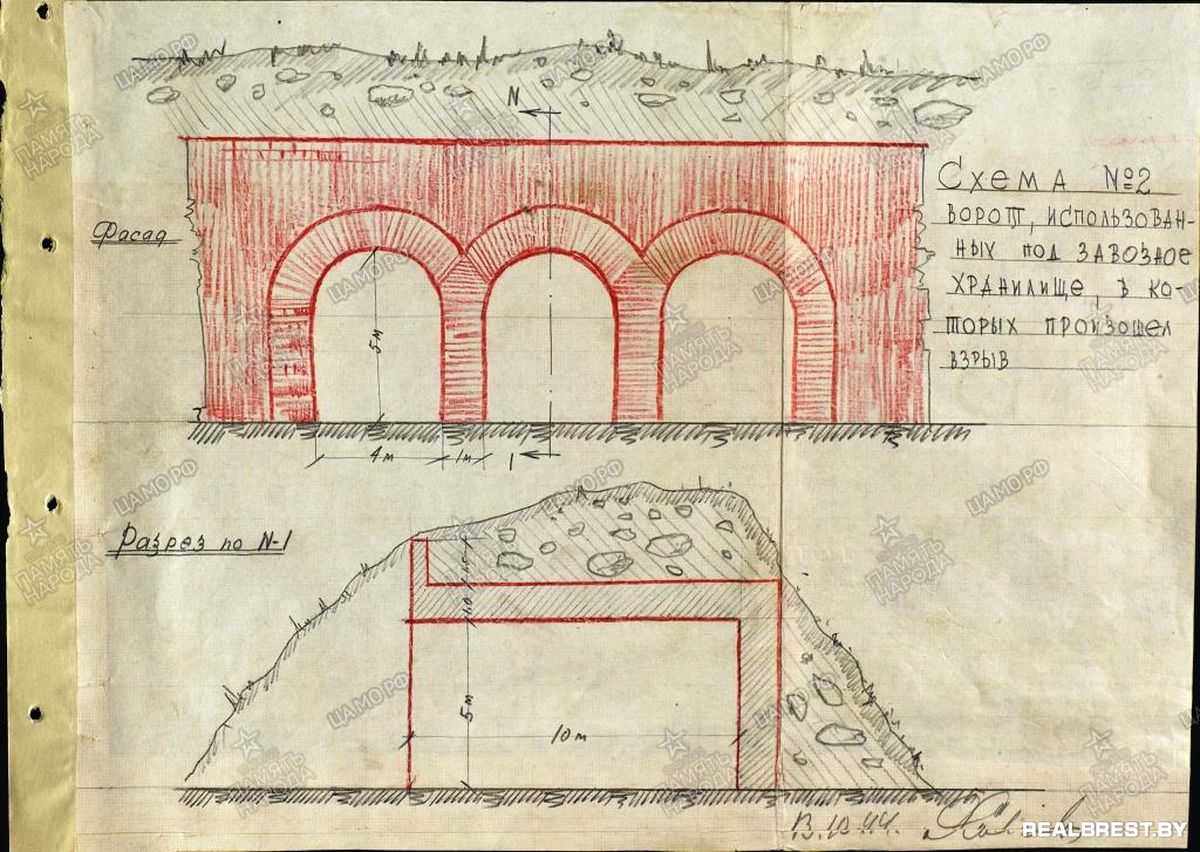 N
Схема №2
ворот, использован-
ных под завозное
хранилище, в ко-
торых произошел
взрыв
Фасад
5м
4м
1м
1
Разрез по N-1
1.0
5м
10м
13.10.44.
ЦАМО РФ
ПАМЯТЬ
НАРОДА
REALBREST.BY